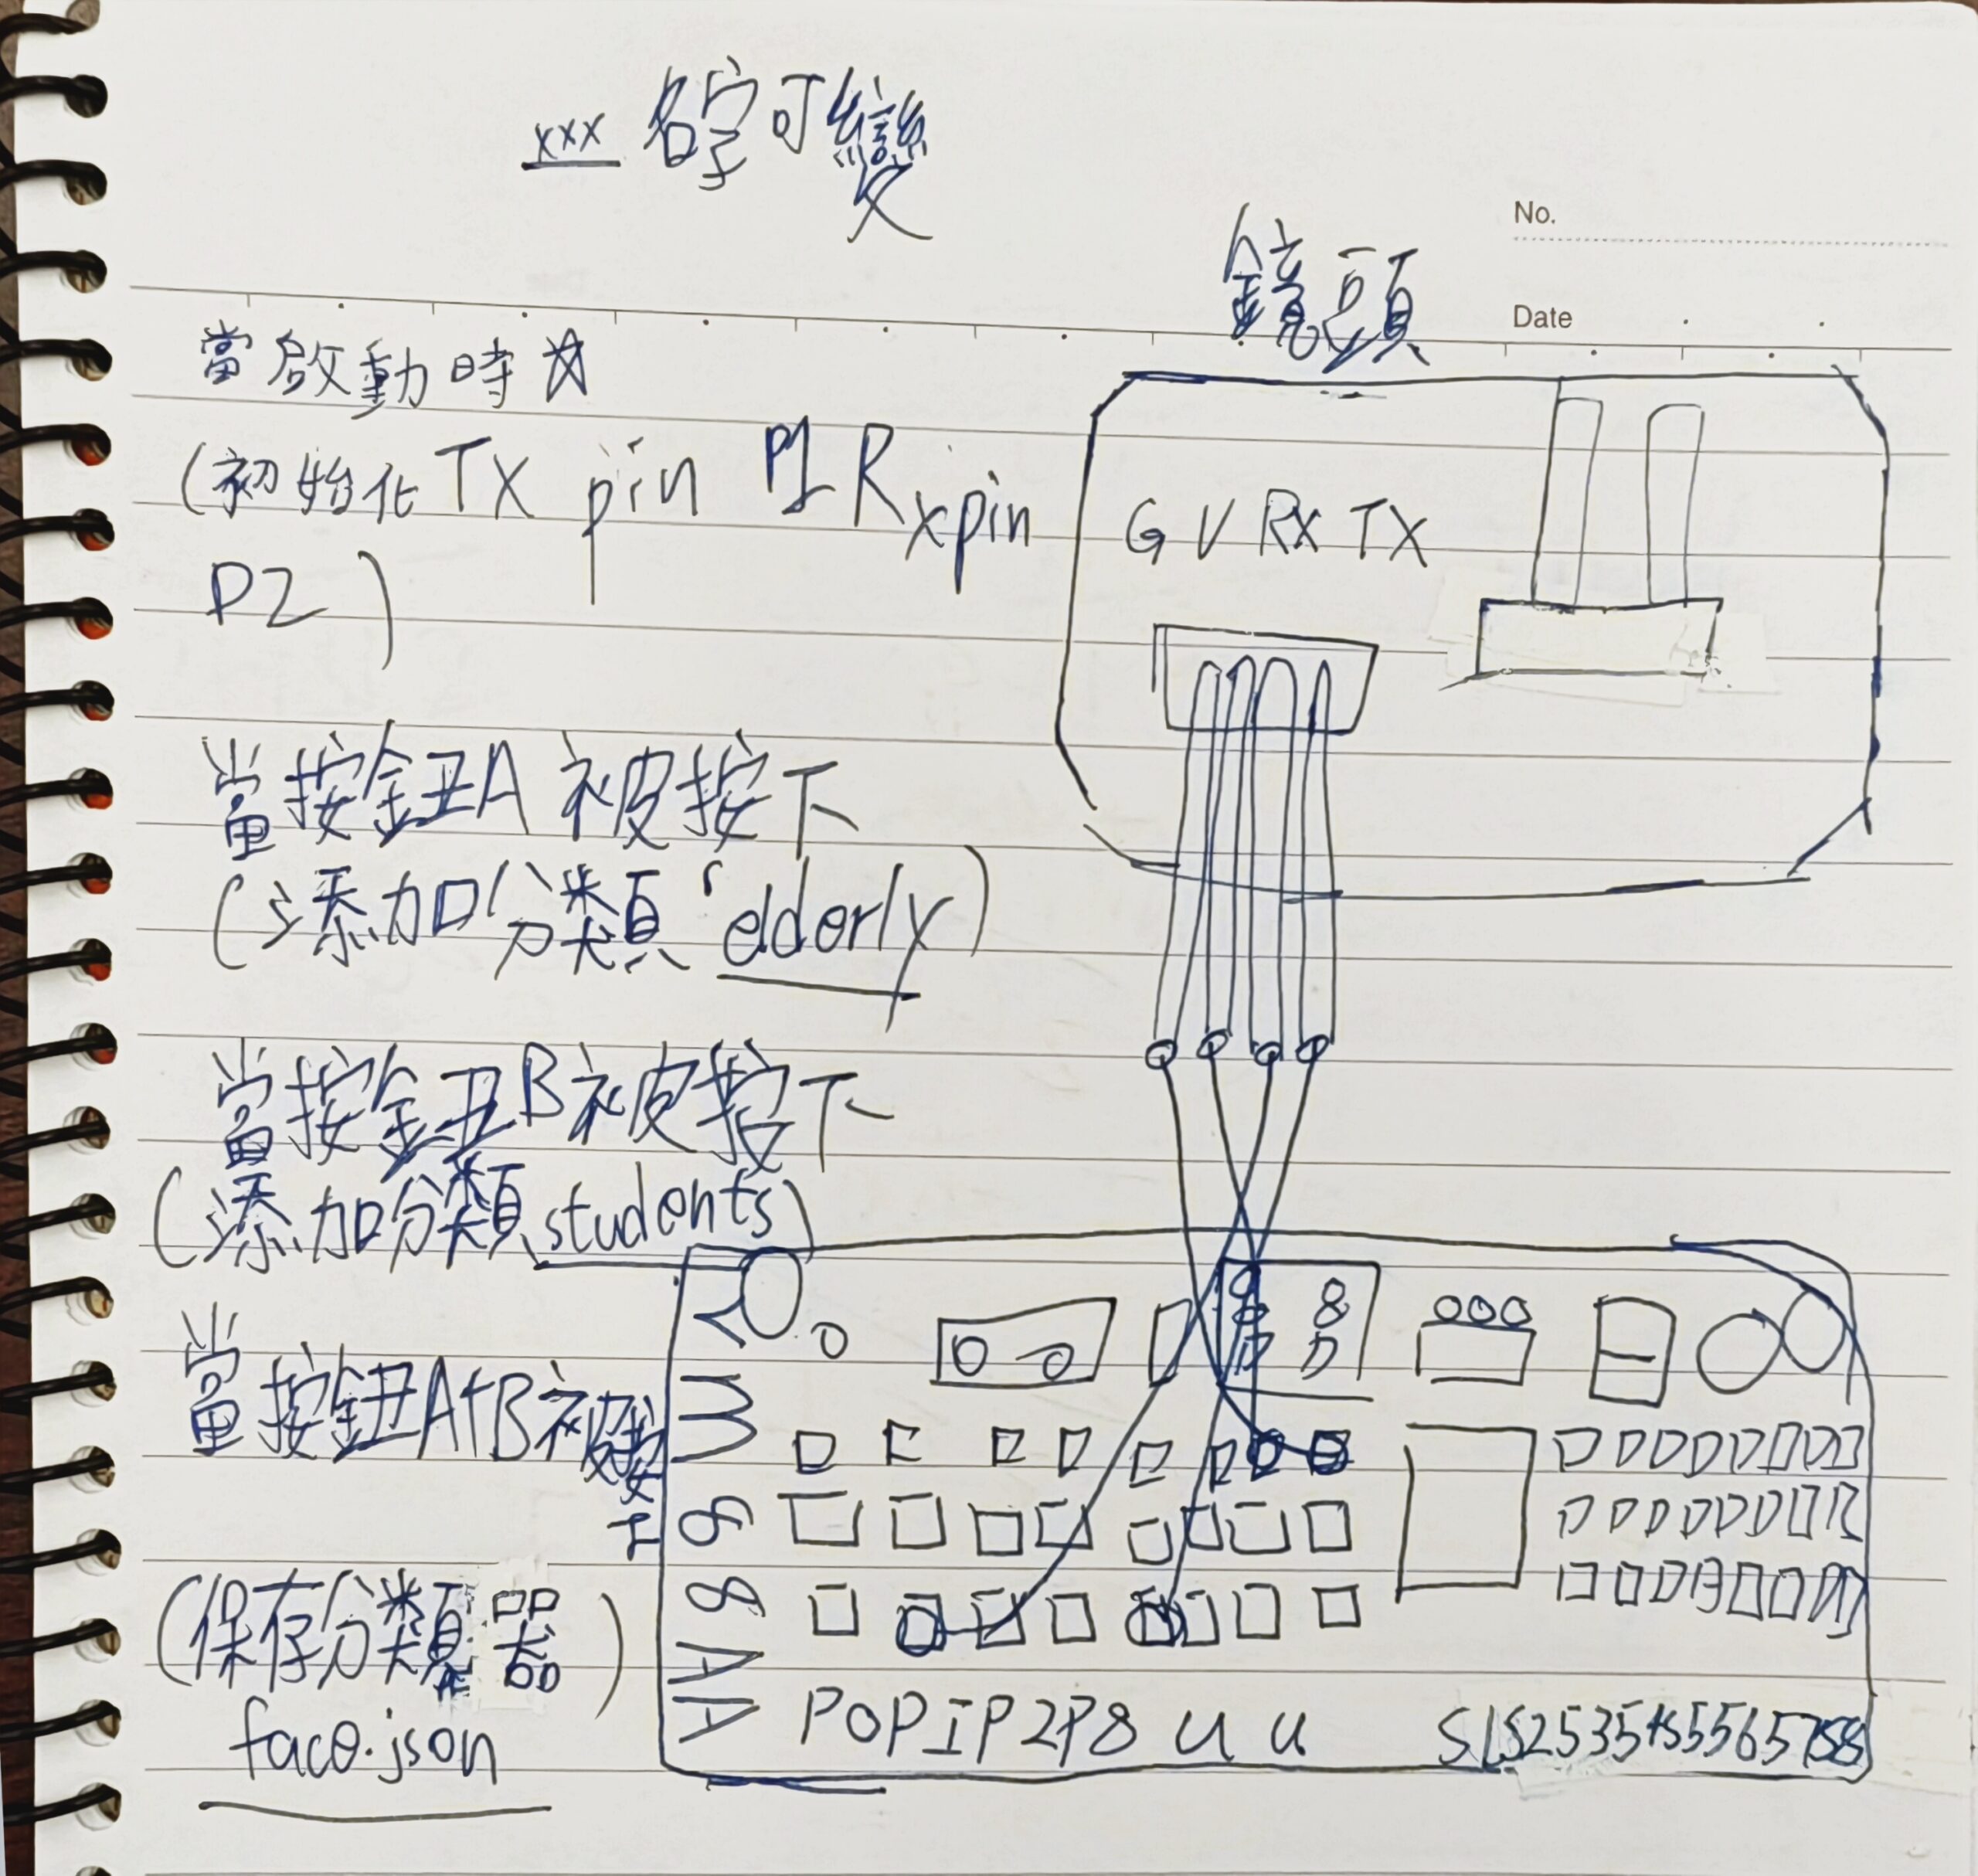 xxx 名字可變
No.
Date
鏡頭
當啟動時
(初始化TX pin P1 Rxpin
P2)
G V RX TX
當按鈕A被按下
(添加分類 elderly)
當按鈕B被按下
(添加分類 students)
當按鈕A+B被按
下
(保存分類器)
face.json
P0P1P2P8